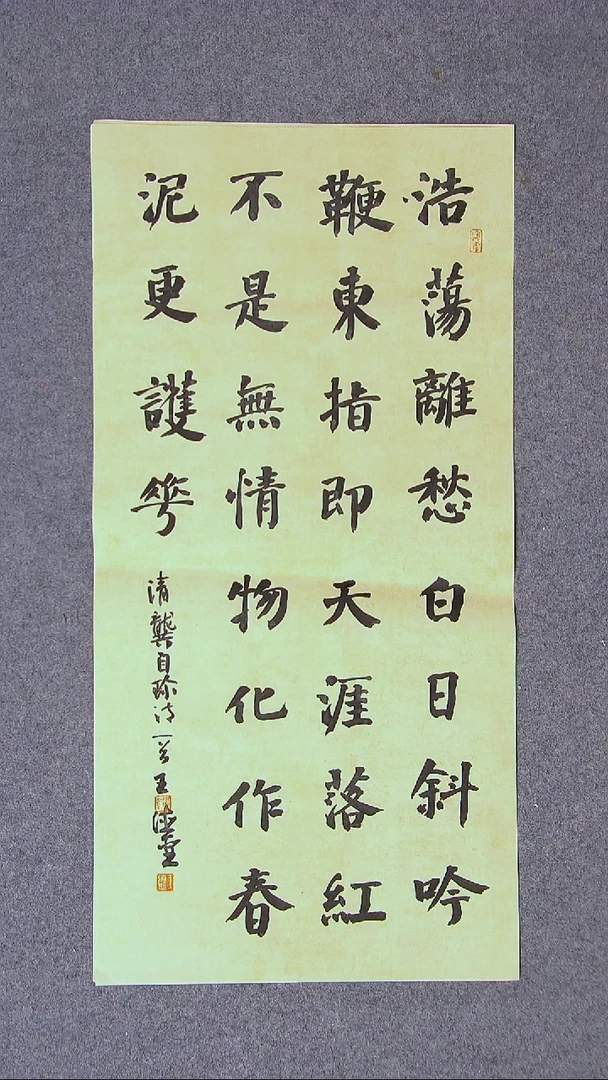 浩蕩離愁白日斜吟
鞭東指即天涯落紅
不是無情物化作春
泥更護花
清龔自珍诗一首王